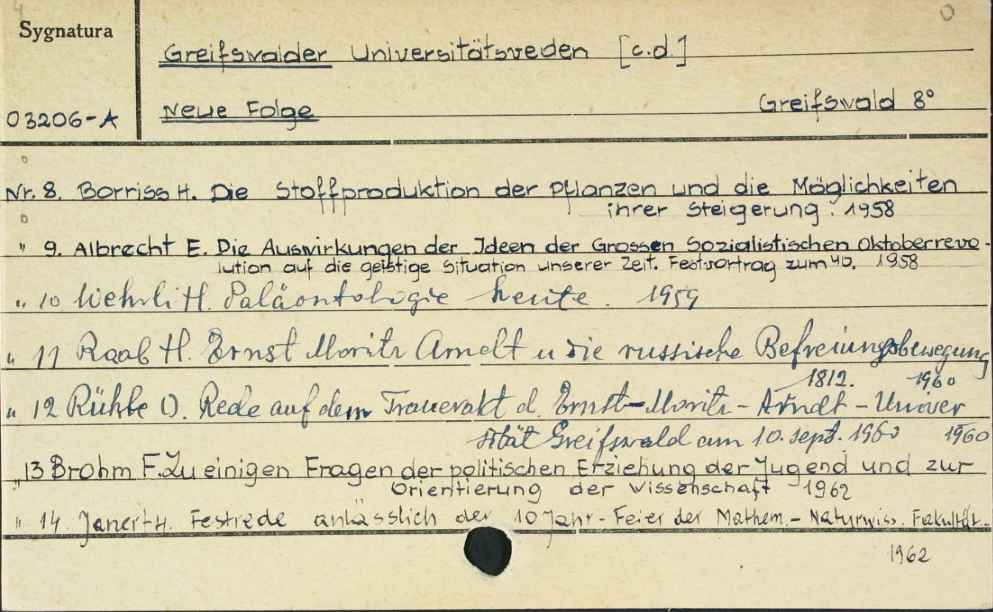 Sygnatura
Greifswalder Universitätsreden [c.d.]
03206-A
Neue Folge Greifswald 8°
Nr. 8. Borriss H. Die Stoffproduktion der Pflanzen und die Möglichkeiten
ihrer Steigerung. 1958
" 9. Albrecht E. Die Auswirkungen der Ideen der Grossen Sozialistischen Oktoberrevo-
lution auf die geistige Situation unserer Zeit. Festvortrag zum 40. 1958
" 10 Wehrli H. Paläontologie heute. 1959
" 11 Raab H. Ernst Moritz Arndt u die russische Befreiungsbewegung
1812. 1960
" 12 Rühle O. Rede auf dem Trauerakt d. Ernst-Moritz-Arndt-Univer
sität Greifswald am 10. sept. 1960 1960
" 13 Brohm F. Zu einigen Fragen der politischen Erziehung der Jugend und zur
Orientierung der Wissenschaft 1962
" 14. Janert H. Festrede anlässlich der 10 Jahr-Feier der Mathem.-Naturwiss. Fakultät.
1962